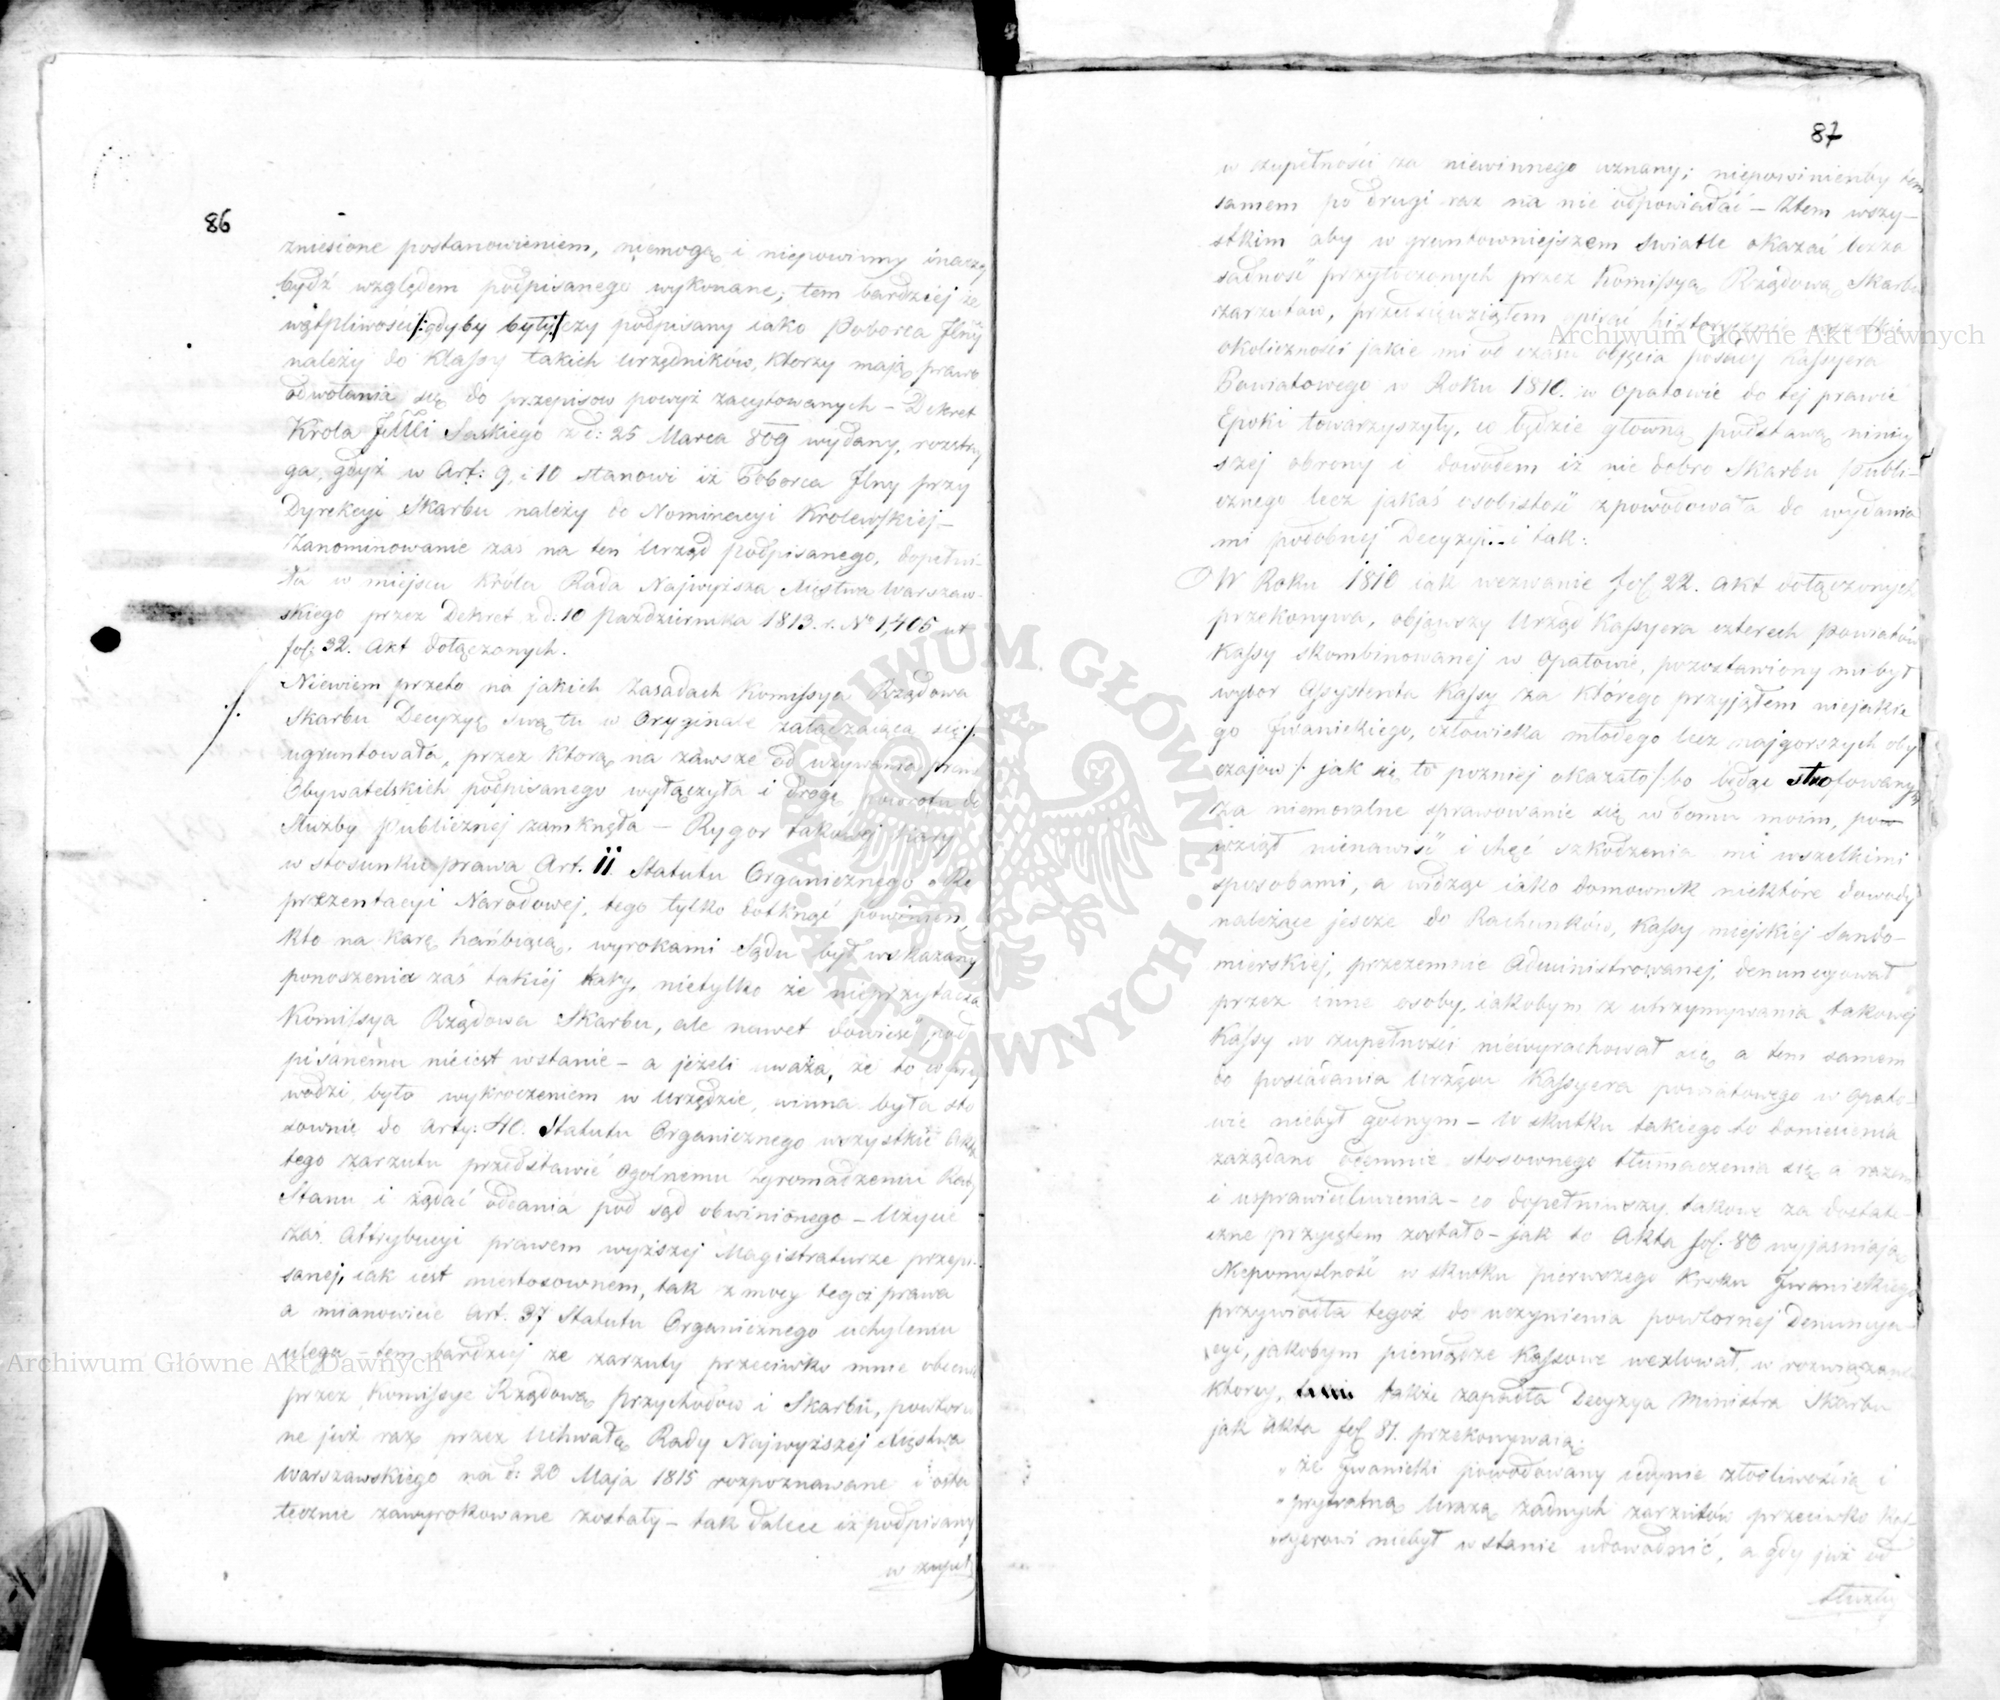 86
zniesione postanowieniem, niemogą i niepowinny inaczey
bydź względem podpisanego wykonane; tem bardziej że
wątpliwości /: gdyby były :/ czy podpisany iako Poborca Jlny
należy do klassy takich urzędników, ktorzy mają prawo
odwołania się do przepisow powyż zacytowanych – Dekret
Króla JMci Saskiego z d: 25 Marca 809 wydany, rozstrzy
ga, gdyż w Art: 9, i 10 stanowi iż Poborca Jlny przy
Dyrekcyi Skarbu należy do Nominacyi Krolewskiej –
Zanominowanie zaś na ten Urząd podpisanego, dopełni-
ła w miejscu Króla Rada Najwyższa Xięstwa Warszaw-
skiego przez Dekret z d: 10 Pazdziernika 1813. r. No 1,405 ut
fol: 32. Akt dołączonych.
Niewiem przeto na jakich zasadach Komissya Rządowa
Skarbu Decyzyę swą tu w Oryginale załączaiącą się /.
ugruntowała, przez ktorą na zawsze od używania praw
Obywatelskich podpisanego wyłączyła i drogę powrotu do
Służby Publicznej zamknęła – Rygor takowej kary
w stosunku prawa Art. 11 Statutu Organicznego o Re
prezentacyi Narodowej, tego tylko dotknąć powinien,
kto na karę hańbiącą, wyrokami Sądu był wskazany
ponoszenia zaś takiij kary, nietylko że nieprzytacza
Komissya Rządowa Skarbu, ale nawet dowieść pod
pisanemu nieiest wstanie – a jeżeli uważa, że to co przy
wodzi, było wykroczeniem w Urzędzie, winna była sto
sownie do Arty: 40. Statutu Organicznego wszystkie Akta
tego zarzutu przedstawić Ogolnemu Zgromadzeniu Rady
Stanu i żądać oddania pod sąd obwinionego – Użycie
zaś Attrybucyi prawem wyższej Magistraturze przepi-
sanej, iak iest niestosownem, tak z mocy tegoż prawa
a mianowicie Art. 37 Statutu Organicznego uchyleniu
ulega – tem bardziej że zarzuty przeciwko mnie obecnie
przez Komissye Rządową Przychodow i Skarbu, powtorzo
ne już raz przez Uchwałę Rady Najwyższej Xięstwa
Warszawskiego na d: 20 Maja 1815 rozpoznawane i osta
tecznie zawyrokowane zostały – tak dalece iż podpisany
w zupeł
87
w zupełności za niewinnego uznany; niepowinienby tem
samem po drugi raz na nie odpowiadać – Ztem wszy-
stkim aby w gruntowniejszem swiatle okazać bezza
sadność przytoczonych przez Komissyą Rządową Skarbu
zarzutow, przedsięwziąłem opisać historycznie wszelkie
okoliczności jakie mi od czasu objęcia posady Kassyera
Powiatowego w Roku 1810. w Opatowie do tej prawie
Epoki towarzyszyły, co będzie głowną podstawą niniey
szej obrony i dowodem iż nie dobro Skarbu Publi-
cznego lecz jakaś osobistość spowodowała do wydania
mi podobnej Decyzyi – i tak:
W Roku 1810 iak wezwanie fol 22. Akt dołączonych
przekonywa, objąwszy Urząd Kassyera czterech Powiatów
Kassy skombinowanej w Opatowie, pozostawiony mi był
wybor Assystenta Kassy za którego przyjąłem niejakie
go Jwanickiego, człowieka młodego lecz najgorszych oby
czajow /: jak się to pozniej okazało :/ bo będąc strofowany
za niemoralne sprawowanie się w domu moim, po
wziął nienawiść i chęć szkodzenia mi wszelkimi
sposobami, a widząc iako domownik niektóre dowody
należące jeszcze do Rachunków, Kassy miejskiej Sando-
mierskiej, przezemnie Administrowanej, denuncyował
przez inne osoby, iakobym z utrzymywania takowej
Kassy w zupełności niewyrachował się, a tem samem
do posiadania Urzędu Kassyera powiatowego w Opato-
wie niebył godnym – W skutku takiego to doniesienia
zażądano odemnie stosownego tłumaczenia się a razem
i usprawiedliwienia – co dopełniwszy, takowe za dostate-
czne przyjętem zostało – jak to Akta fol. 80 wyjasniają
Niepomyślność w skutku pierwszego Kroku Jwanickiego
przywiodła tegoż do uczynienia powtornej Denuncya-
cyi, jakobym pieniądze Kassowe wexlował, w rozwiązaniu
ktorey, także zapadła Decyzya Ministra Skarbu
jak Akta fol 81. przekonywaią:
„że Jwanicki powodowany iedynie złośliwością i
„prywatną urazą żadnych zarzutów przeciwko Kas-
„syerowi niebył wstanie udowodnić, a gdy już od
służby
Archiwum Główne Akt Dawnych
Archiwum Główne Akt Dawnych
ARCHIWUM GŁÓWNE AKT DAWNYCH